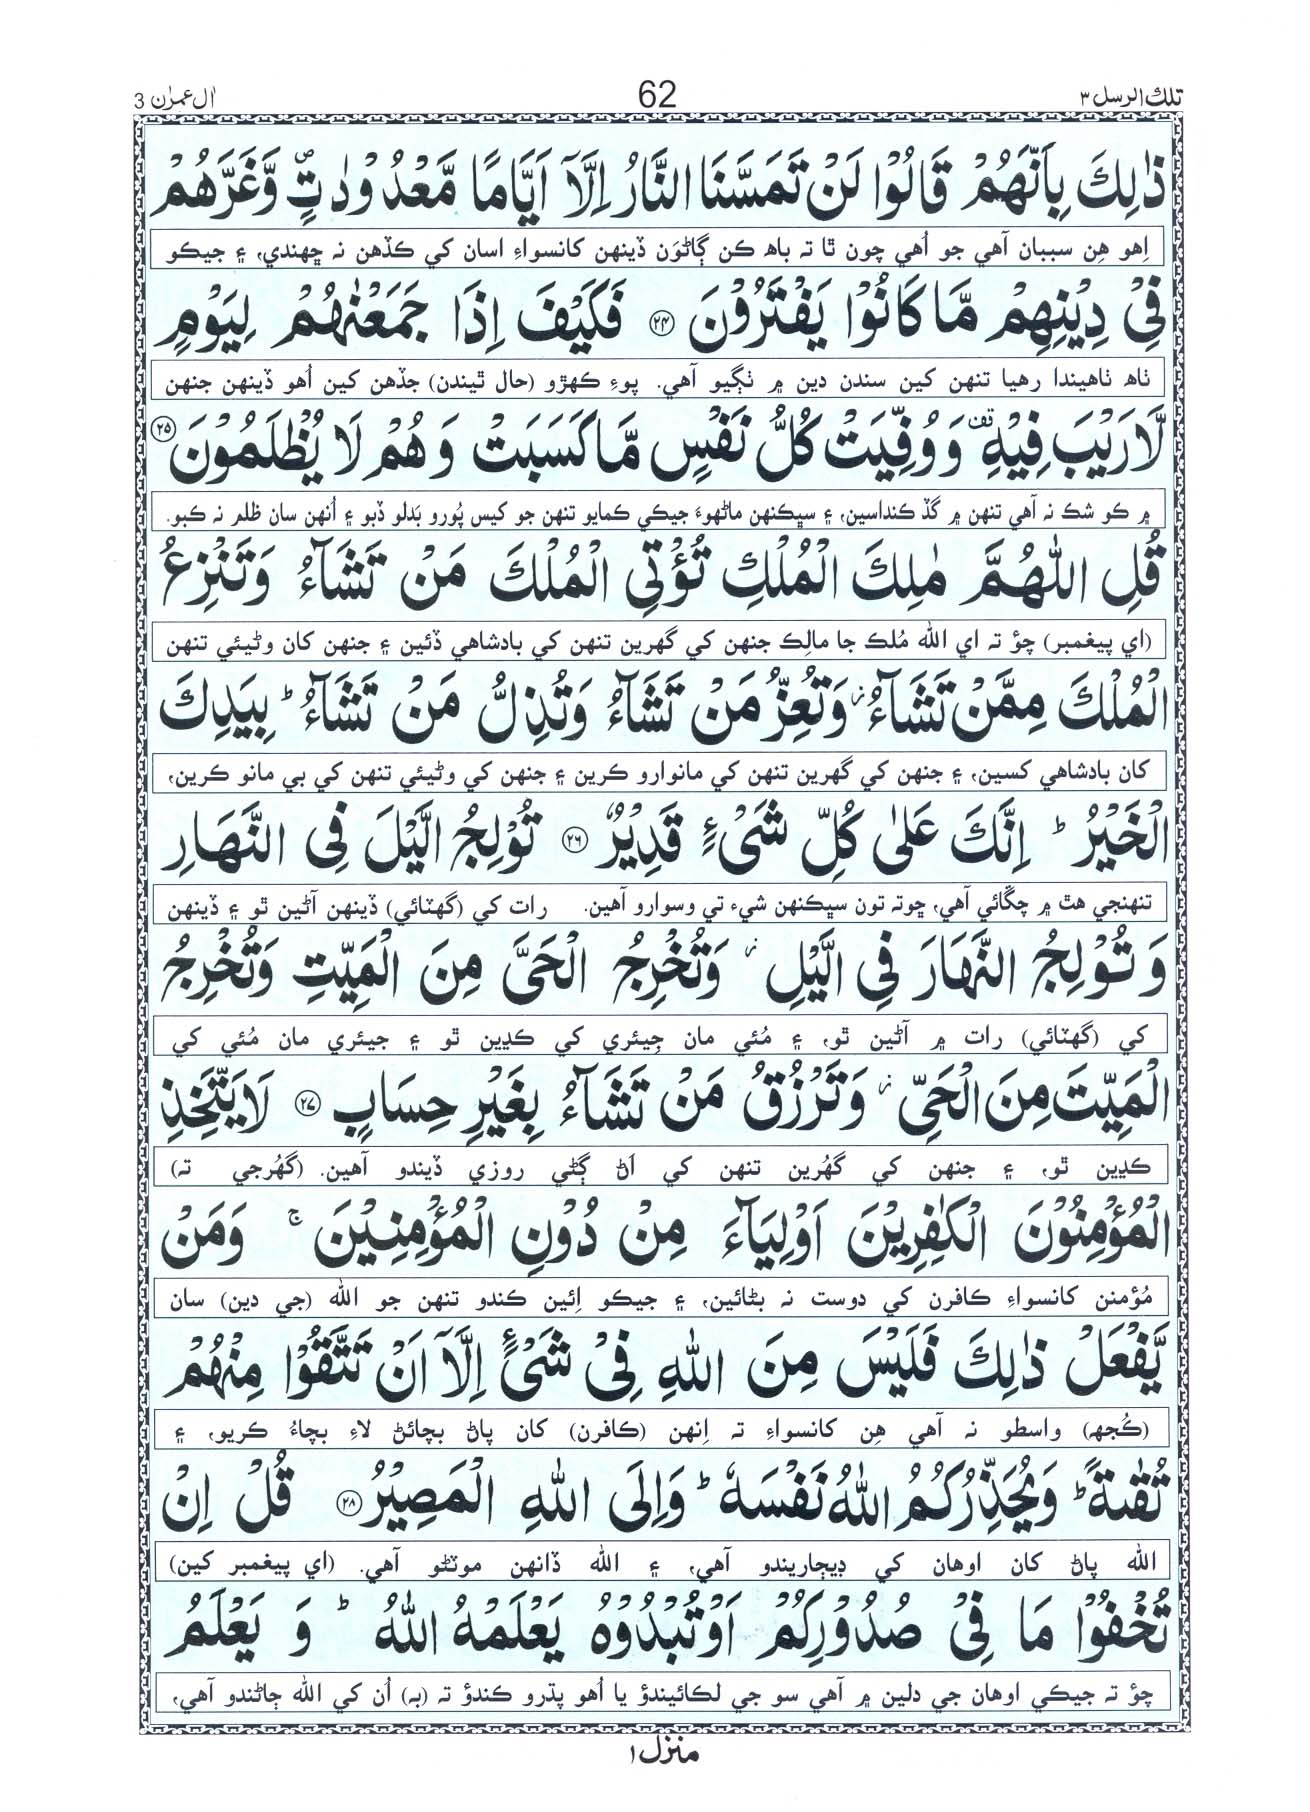 تلك الرسل ٣
62
اٰل عمرٰن 3
ذٰلِكَ بِاَنَّهُمْ قَالُوْا لَنْ تَمَسَّنَا النَّارُ اِلَّاۤ اَيَّامًا مَّعْدُوْدٰتٍ۪ وَّغَرَّهُمْ
اِهو هِن سببان آهي جو اُهي چون ٿا ته باھ ڪن ڳاڻوَن ڏينهن کانسواءِ اسان کي ڪڏهن نہ ڇهندي، ۽ جيڪو
فِيْ دِيْنِهِمْ مَّا كَانُوْا يَفْتَرُوْنَ ۝۲۴ فَكَيْفَ اِذَا جَمَعْنٰهُمْ لِيَوْمٍ
ٺاھ ٺاهيندا رهيا تنهن کين سندن دين ۾ ٺڳيو آهي. پوءِ ڪهڙو (حال ٿيندن) جڏهن کين اُهو ڏينهن جنهن
لَّا رَيْبَ فِيْهِ ۫ وَوُفِّيَتْ كُلُّ نَفْسٍ مَّا كَسَبَتْ وَهُمْ لَا يُظْلَمُوْنَ ۝۲۵
۾ ڪو شڪ نہ آهي تنهن ۾ گڏ ڪنداسين، ۽ سڀڪنهن ماڻهوءَ جيڪي ڪمايو تنهن جو کيس پُورو بَدلو ڏبو ۽ اُنهن سان ظلم نہ ڪبو.
قُلِ اللّٰهُمَّ مٰلِكَ الْمُلْكِ تُؤْتِي الْمُلْكَ مَنْ تَشَآءُ وَتَنْزِعُ
(اي پيغمبر) چؤ تہ اي الله مُلڪ جا مالِڪ جنهن کي گهرين تنهن کي بادشاهي ڏئين ۽ جنهن کان وڻيئي تنهن
الْمُلْكَ مِمَّنْ تَشَآءُ ؗ وَتُعِزُّ مَنْ تَشَآءُ وَتُذِلُّ مَنْ تَشَآءُ ؕ بِيَدِكَ
کان بادشاهي کسين، ۽ جنهن کي گهرين تنهن کي مانوارو ڪرين ۽ جنهن کي وڻيئي تنهن کي بي مانو ڪرين،
الْخَيْرُ ؕ اِنَّكَ عَلٰى كُلِّ شَيْءٍ قَدِيْرٌ ۝۲۶ تُوْلِجُ الَّيْلَ فِي النَّهَارِ
تنهنجي هٿ ۾ چڱائي آهي، ڇوتہ تون سڀڪنهن شيء تي وسوارو آهين. رات کي (گهٽائي) ڏينهن آڻين ٿو ۽ ڏينهن
وَتُوْلِجُ النَّهَارَ فِي الَّيْلِ ؗ وَتُخْرِجُ الْحَيَّ مِنَ الْمَيِّتِ وَتُخْرِجُ
کي (گهٽائي) رات ۾ آڻين ٿو، ۽ مُئي مان جِيئري کي ڪڍين ٿو ۽ جيئري مان مُئي کي
الْمَيِّتَ مِنَ الْحَيِّ ؗ وَتَرْزُقُ مَنْ تَشَآءُ بِغَيْرِ حِسَابٍ ۝۲۷ لَا يَتَّخِذِ
ڪڍين ٿو، ۽ جنهن کي گهُرين تنهن کي اَڻ ڳڻي روزي ڏيندو آهين. (گهُرجي تہ)
الْمُؤْمِنُوْنَ الْكٰفِرِيْنَ اَوْلِيَآءَ مِنْ دُوْنِ الْمُؤْمِنِيْنَ ۚ وَمَنْ
مُؤمنن کانسواءِ ڪافرن کي دوست نہ بڻائين، ۽ جيڪو اِئين ڪندو تنهن جو الله (جي دين) سان
يَّفْعَلْ ذٰلِكَ فَلَيْسَ مِنَ اللّٰهِ فِيْ شَيْءٍ اِلَّاۤ اَنْ تَتَّقُوْا مِنْهُمْ
(ڪُجهہ) واسطو نہ آهي هِن کانسواءِ تہ اِنهن (ڪافرن) کان پاڻ بچائڻ لاءِ بچاءُ ڪريو، ۽
تُقٰىةً ؕ وَيُحَذِّرُكُمُ اللّٰهُ نَفْسَهٗ ؕ وَاِلَى اللّٰهِ الْمَصِيْرُ ۝۲۸ قُلْ اِنْ
الله پاڻ کان اوهان کي ڊيڄاريندو آهي، ۽ الله ڏانهن موٽڻو آهي. (اي پيغمبر کين)
تُخْفُوْا مَا فِيْ صُدُوْرِكُمْ اَوْ تُبْدُوْهُ يَعْلَمْهُ اللّٰهُ ؕ وَيَعْلَمُ
چؤ تہ جيڪي اوهان جي دلين ۾ آهي سو جي لڪائيندؤ يا اُهو پڌرو ڪندؤ تہ (بہ) اُن کي الله ڄاڻندو آهي،
منزل ١